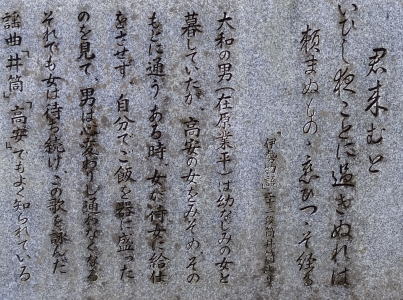 君来むと
いひし夜ごとに過ぎぬれば
頼まぬものの恋ひつつぞ経る
『伊勢物語』
大和の男(在原業平)は幼なじみの女と
暮していたが、高安の女をみそめ、その
もとに通う。ある時、女が侍女に給仕
をさせず、自分でご飯を器に盛った
のを見て、男は心変わりし通わなくなる
それでも女は待ち続け、この歌を詠んだ
謡曲「井筒」「高安」でもよく知られている